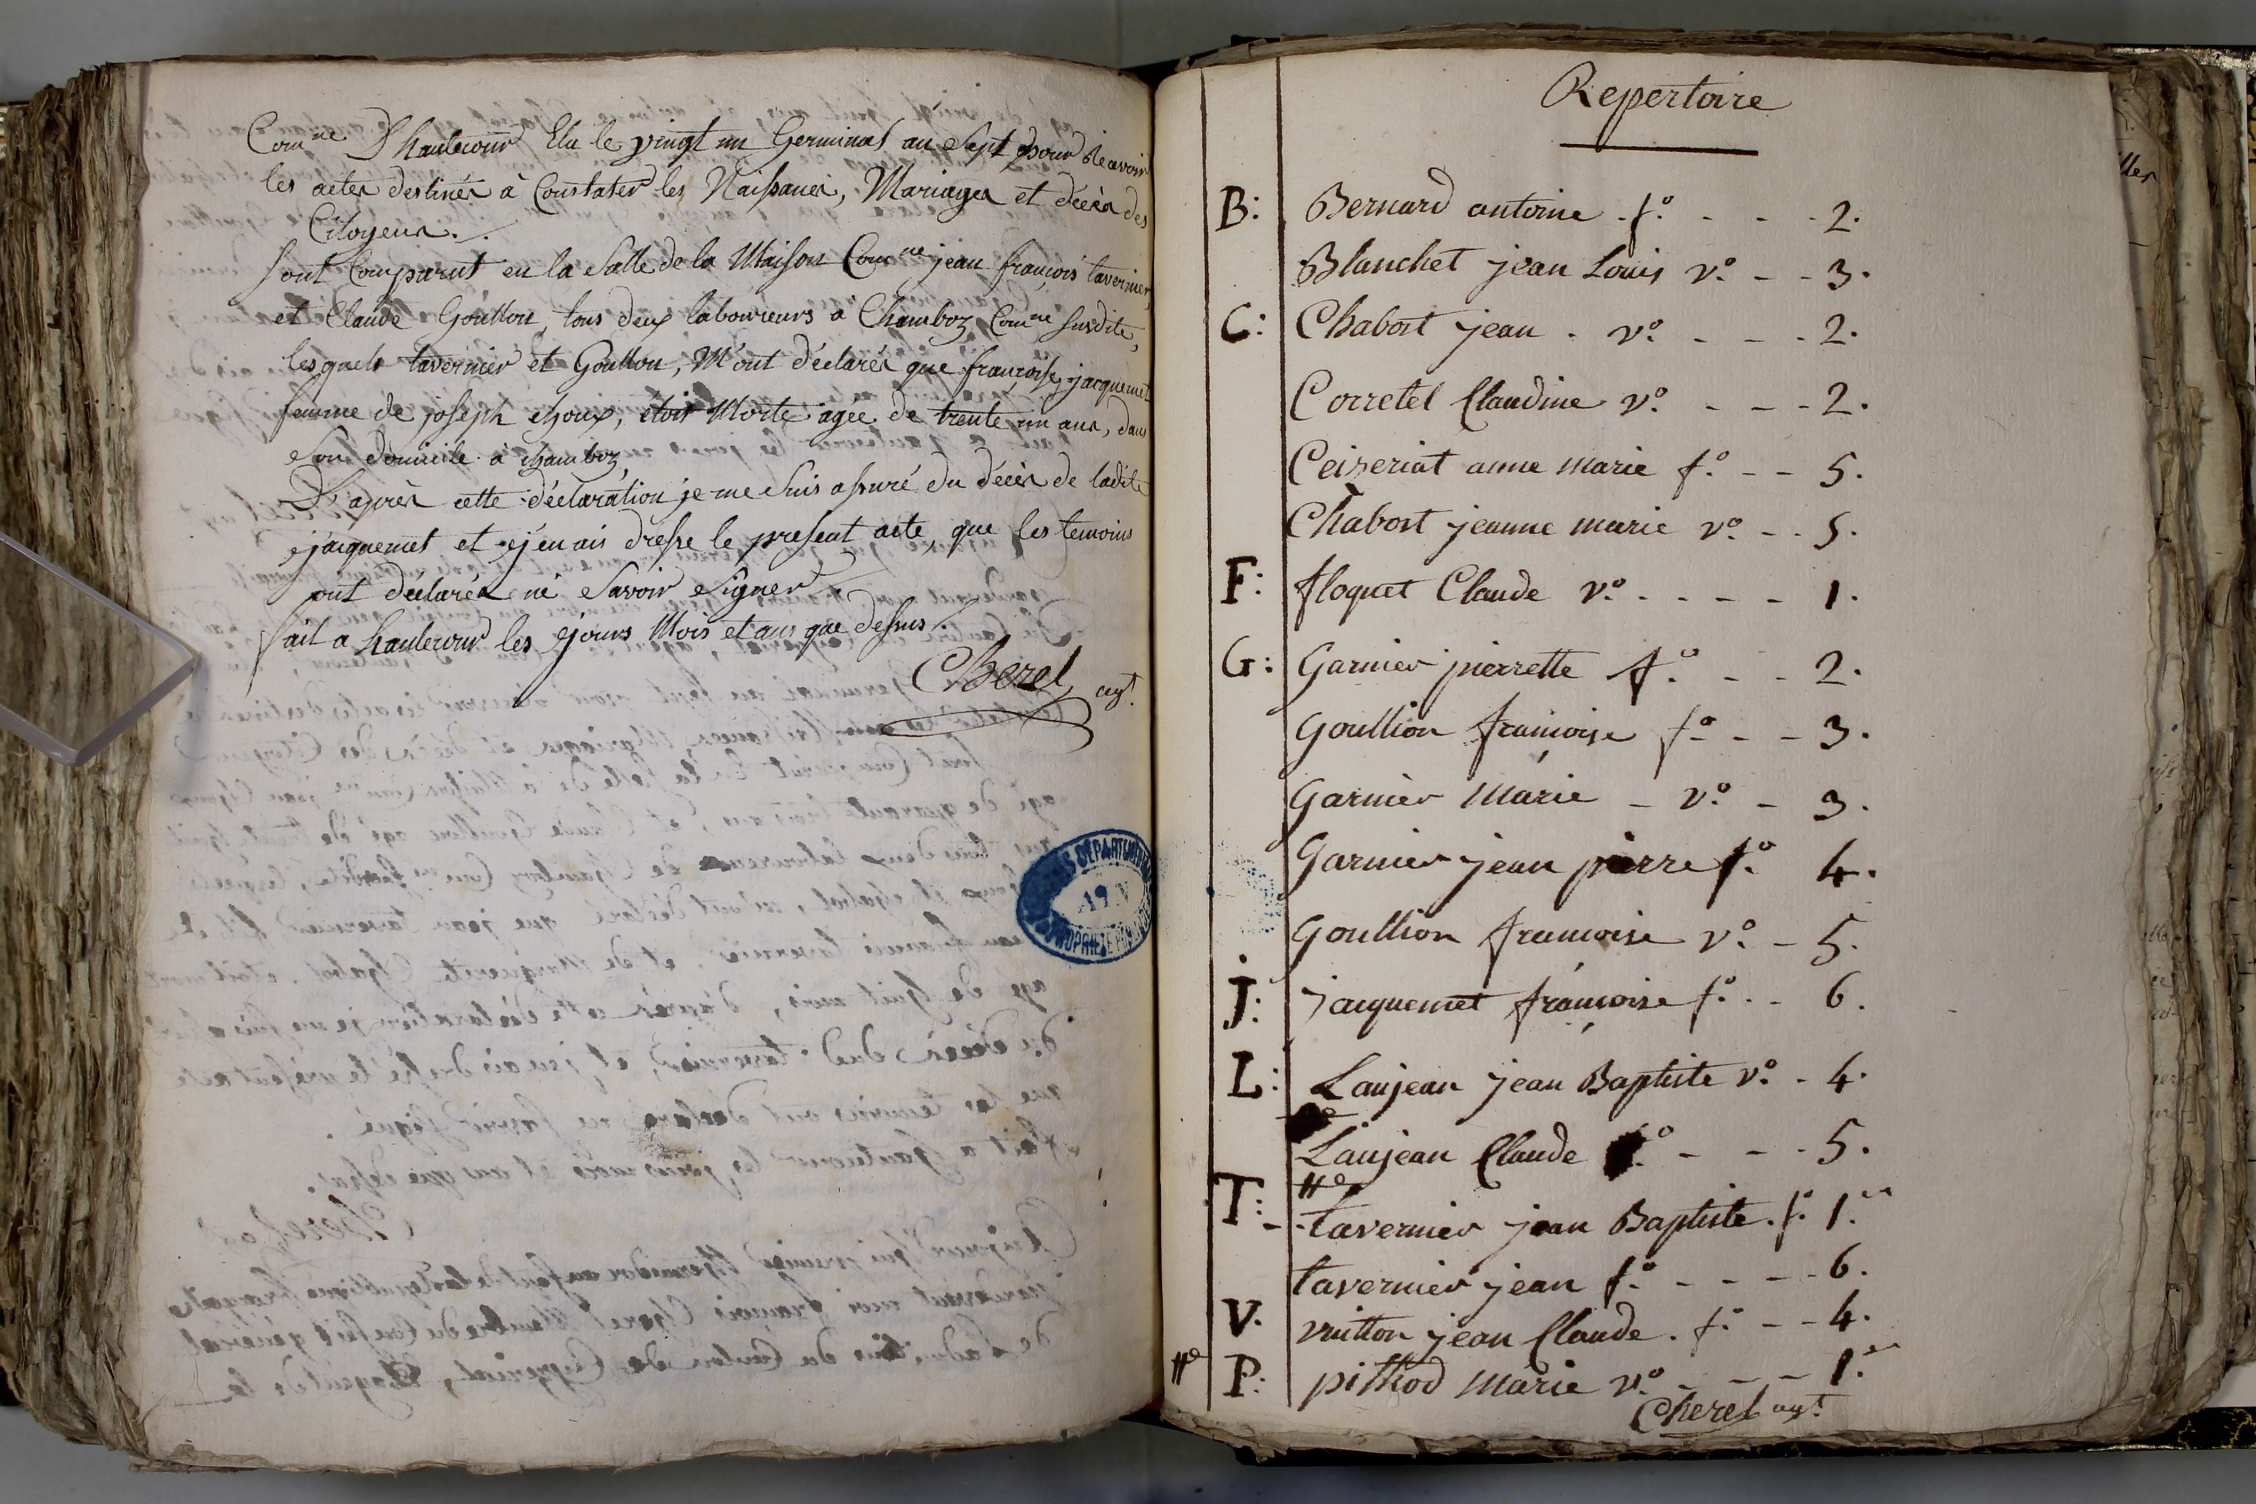 Com.ne D'hautecour Elu le vingt un Germinal an Sept pour Recevoir
les actes destinés à Constater les Naissances, Mariages et décès des
Citoyens ./.
Sont Comparut en la Salle de la Maison Com.ne jean françois tavernier,
et Claude Goullion, tous deux laboureurs a Chamboz Com.ne susdite,
lesquels tavernier et Goullion, M'ont déclarés que françoise jacquemet
femme de joseph choux, étoit Morte agee de trente un ans, dans
son domicile à chamboz,
D'après cette déclaration je me suis assuré du décès de ladite
jacquemet et j'en ais dressé le present acte, que les temoins
ont déclarés ne savoir signer ./.
fait a hautecour les jours Mois et ans que dessus ./.
Cherel agt
Repertoire
B: Bernard antoine . f.o - - - 2.
Blanchet jean Louis v.o - - 3.
C: Chabort jean . v.o - - - 2.
Corretel Claudine v.o - - - 2.
Ceizeriat anne marie f.o - - 5.
Chabort jeanne marie v.o - - 5.
F: floquet Claude v.o - - - - 1.
G: Garnier pierrette f.o - - 2.
Goullion francoise f.o - - 3.
Garnier Marie - v.o - 3.
Garnier jean pierre f.o 4.
Goullion francoise v.o - 5.
J: jacquemet françoise f.o - - 6.
L: Laujean jean Baptiste v.o - 4.
Laujean Claude - - - 5.
T: tavernier jean Baptiste . f.o 1.
tavernier jean f.o - - - - 6.
V. vuitton jean Claude . f.o - - 4.
P: pithod Marie v.o - - - 1.
Cherel agt